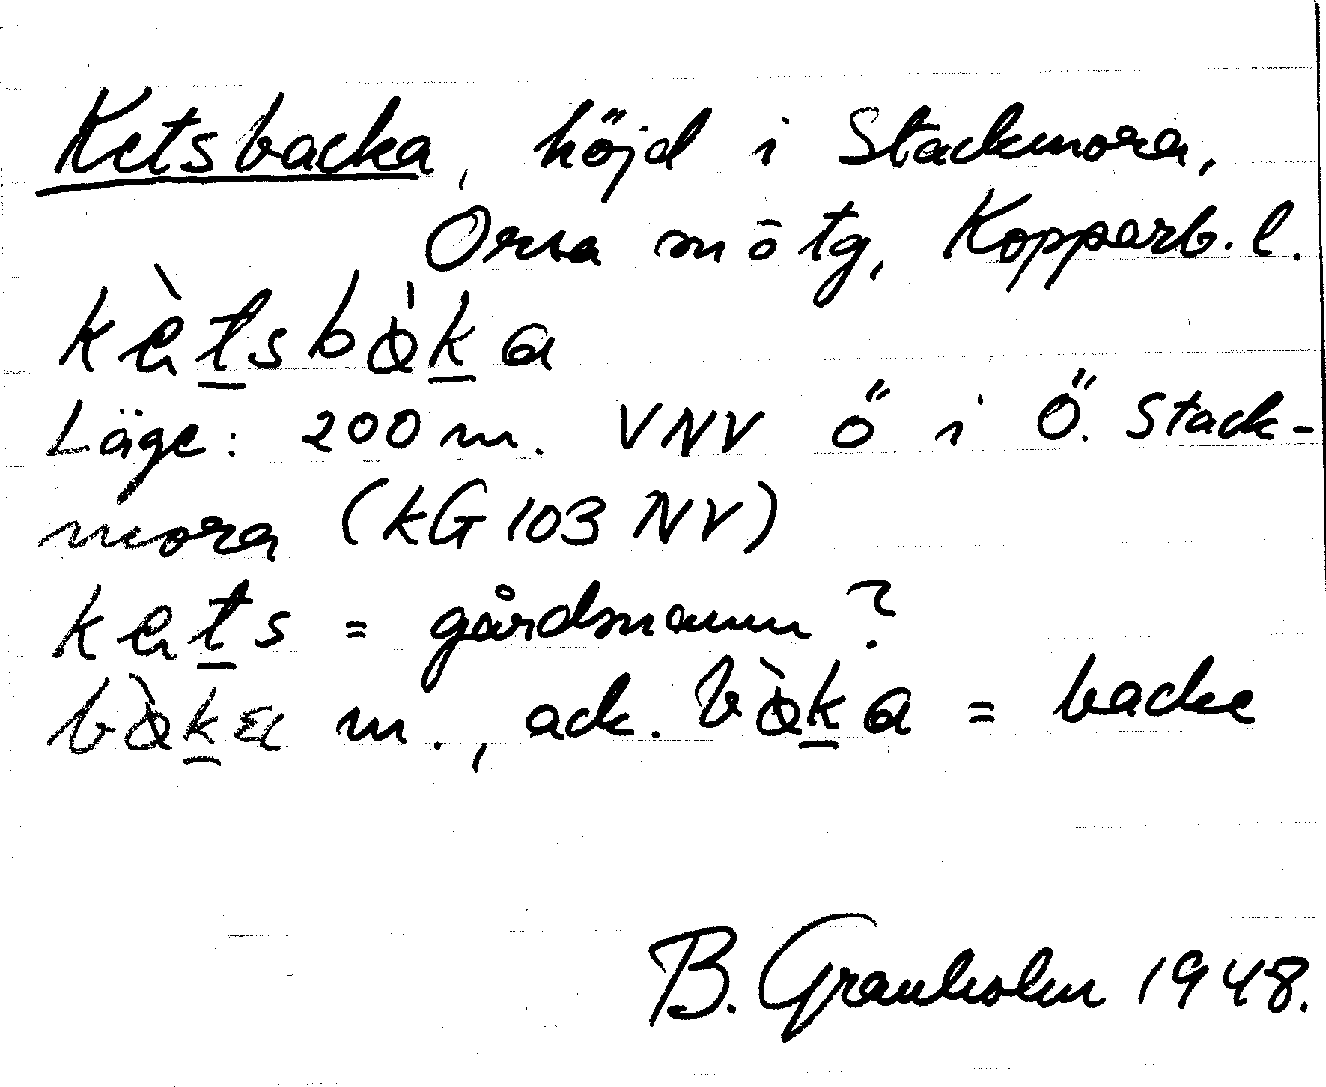 Ketsbacka, höjd i Stackmora,
Orsa mötg, Kopparb. l.
kètsbàka
Läge: 200 m. VNV Ö i Ö. Stack-
mora (KG 103 NV)
kets = gårdsnamn?
bàka m., ack. bàka = backe
B. Granholm 1948.